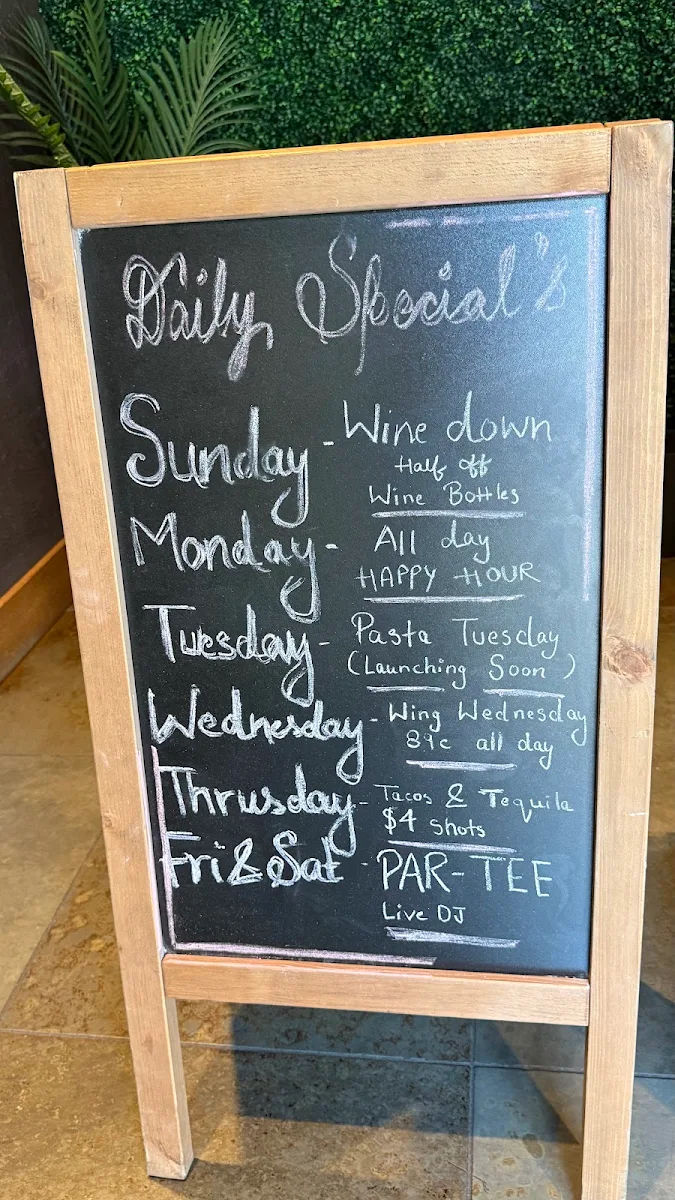 Daily Special's
Sunday - Wine down
Half off
Wine Bottles
Monday - All day
HAPPY HOUR
Tuesday - Pasta Tuesday
(Launching Soon)
Wednesday - Wing Wednesday
89c all day
Thrusday - Tacos & Tequila
$4 Shots
Fri & Sat - PAR-TEE
Live DJ